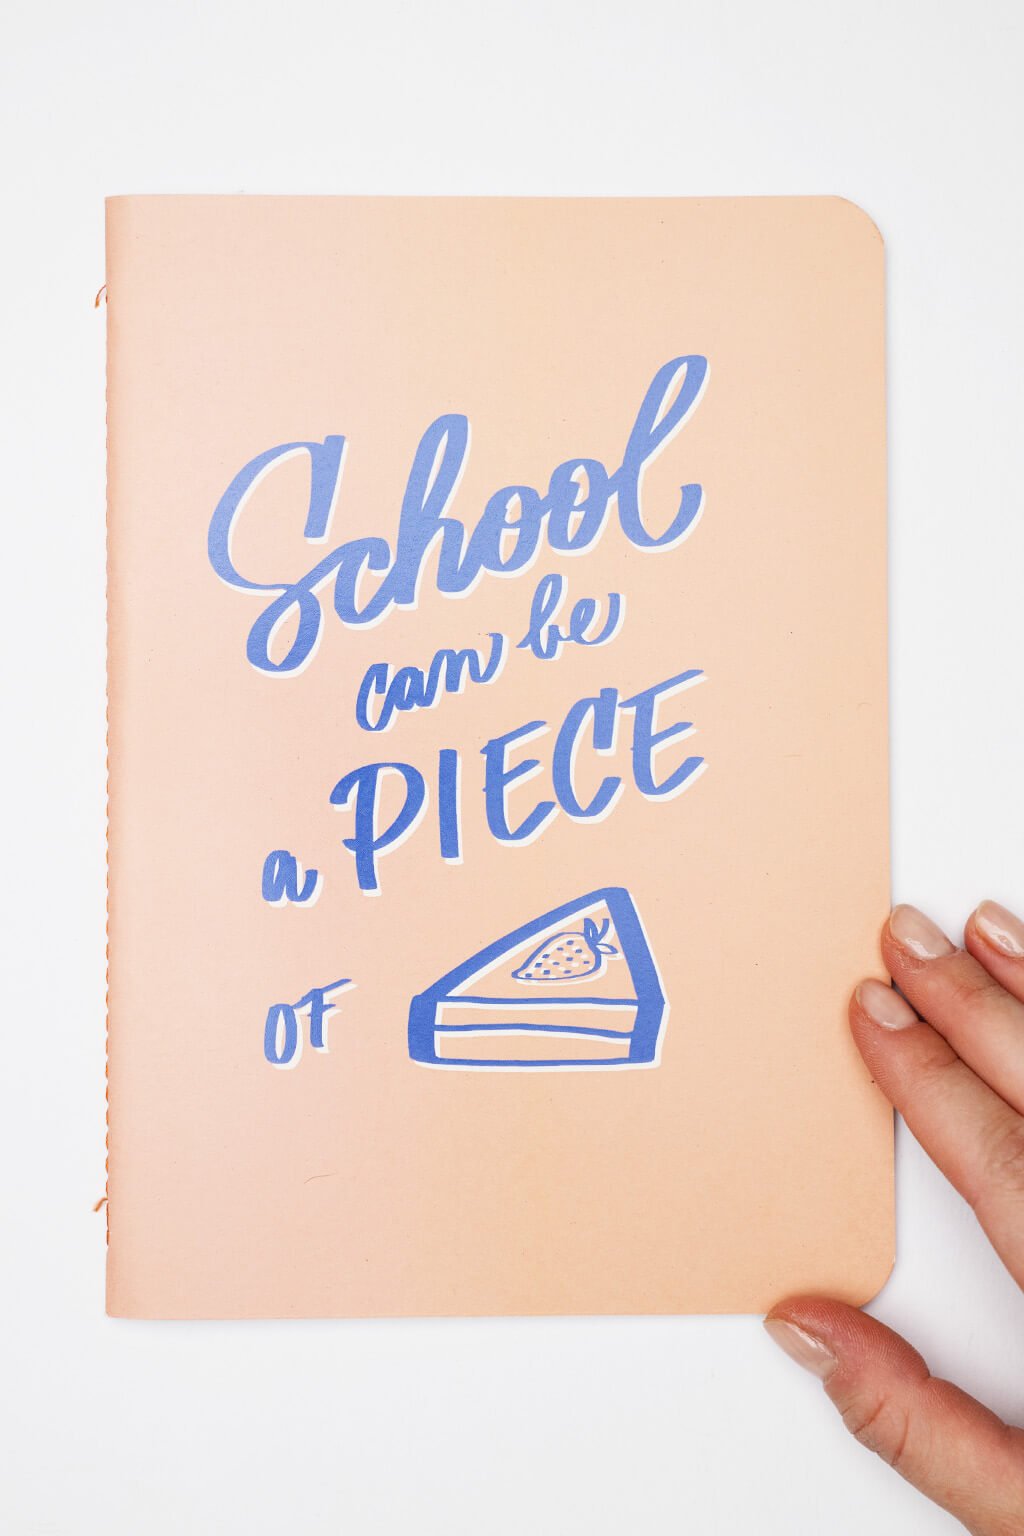 School
can be
a PIECE
OF